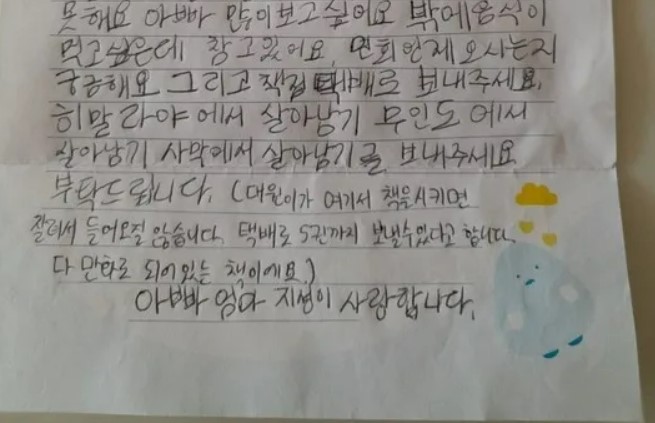 못해요 아빠 많이보고싶어요 밖에음식이
먹고싶은데 참고있어요. 면회언제오시는지
궁금해요 그리고 책점 택배로 보내주세요.
히말라야에서 살아남기 무인도에서
살아남기 사막에서살아남기를 보내주세요
부탁드립니다. (대원이가 여기서 책을시키면
잘려서 들어오질 않습니다. 택배로 5권까지 보낼수있다고 합니다.
다 만화로 되어있는 책이에요.)
아빠 엄마 지성이 사랑합니다.